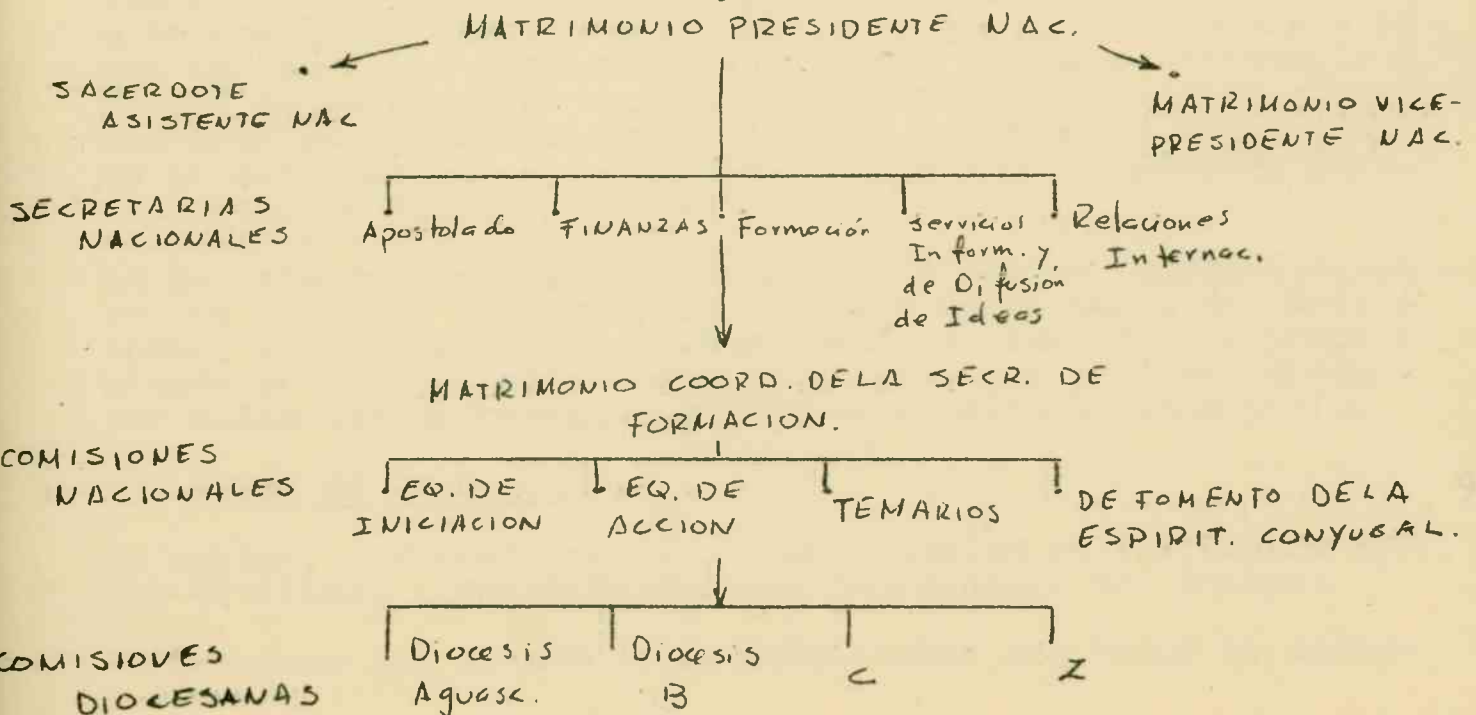 MATRIMONIO PRESIDENTE NAC.
SACERDOTE
ASISTENTE NAC
MATRIMONIO VICE-
PRESIDENTE NAC.
SECRETARIAS
NACIONALES
Apostolado
FINANZAS
Formación
Servicios
Inform. y
de Difusión
de Ideas
Relaciones
Internac.
MATRIMONIO COORD. DE LA SECR. DE
FORMACION.
COMISIONES
NACIONALES
EQ. DE
INICIACION
EQ. DE
ACCION
TEMARIOS
DE FOMENTO DE LA
ESPIRIT. CONYUGAL.
COMISIONES
DIOCESANAS
Diocesis
Aguasc.
Diocesis
B
C
Z